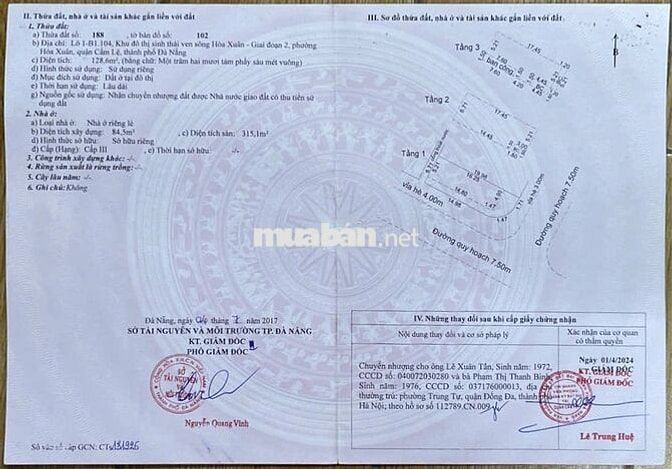 II. Thửa đất, nhà ở và tài sản khác gắn liền với đất
1. Thửa đất:
a) Thửa đất số: 188 , tờ bản đồ số: 102
b) Địa chỉ: Lô 1-B1.104, Khu đô thị sinh thái ven sông Hòa Xuân - Giai đoạn 2, phường
Hòa Xuân, quận Cẩm Lệ, thành phố Đà Nẵng
c) Diện tích: 128,6m², (bằng chữ: Một trăm hai mươi tám phẩy sáu mét vuông)
d) Hình thức sử dụng: Sử dụng riêng
đ) Mục đích sử dụng: Đất ở tại đô thị
e) Thời hạn sử dụng: Lâu dài
g) Nguồn gốc sử dụng: Nhận chuyển nhượng đất được Nhà nước giao đất có thu tiền sử
dụng đất
2. Nhà ở:
a) Loại nhà ở: Nhà ở riêng lẻ
b) Diện tích xây dựng: 84,5m² , c) Diện tích sàn: 315,1m²
d) Hình thức sở hữu: Sở hữu riêng
đ) Cấp (Hạng): Cấp III , e) Thời hạn sở hữu: -/-
3. Công trình xây dựng khác: -/-
4. Rừng sản xuất là rừng trồng: -/-
5. Cây lâu năm: -/-
6. Ghi chú: Không
Đà Nẵng, ngày 04 tháng 7 năm 2017
SỞ TÀI NGUYÊN VÀ MÔI TRƯỜNG TP. ĐÀ NẴNG
KT. GIÁM ĐỐC
PHÓ GIÁM ĐỐC
SỞ
TÀI NGUYÊN
VÀ
Nguyễn Quang Vinh
Số vào sổ cấp GCN: CTs
III. Sơ đồ thửa đất, nhà ở và tài sản khác gắn liền với đất
B
Tầng 3
17.45
1.20
ban công
4.45
7.60
4.20
Tầng 2
17.45
5.21
6.71
14.45
3.00
Tầng 1
5.21
19.96
16.26
14.80
4.90
14.96
1.47
1.47
1.71
vỉa hè 4.00m
vỉa hè 3.00m
Đường quy hoạch 7.50m
Đường quy hoạch 7.50m
muaban.net
IV. Những thay đổi sau khi cấp giấy chứng nhận
Nội dung thay đổi và cơ sở pháp lý
Xác nhận của cơ quan
có thẩm quyền
Chuyển nhượng cho ông Lê Xuân Tấn, Sinh năm: 1972,
CCCD số: 040072030280 và bà Phạm Thị Thanh Bình,
Sinh năm: 1976, CCCD số: 037176000013, địa chỉ
thường trú: phường Trung Tự, quận Đống Đa, thành phố
Hà Nội; theo hồ sơ số 112789.CN.009
Ngày 01/4/2024
KT. GIÁM ĐỐC
PHÓ GIÁM ĐỐC
Lê Trung Huệ